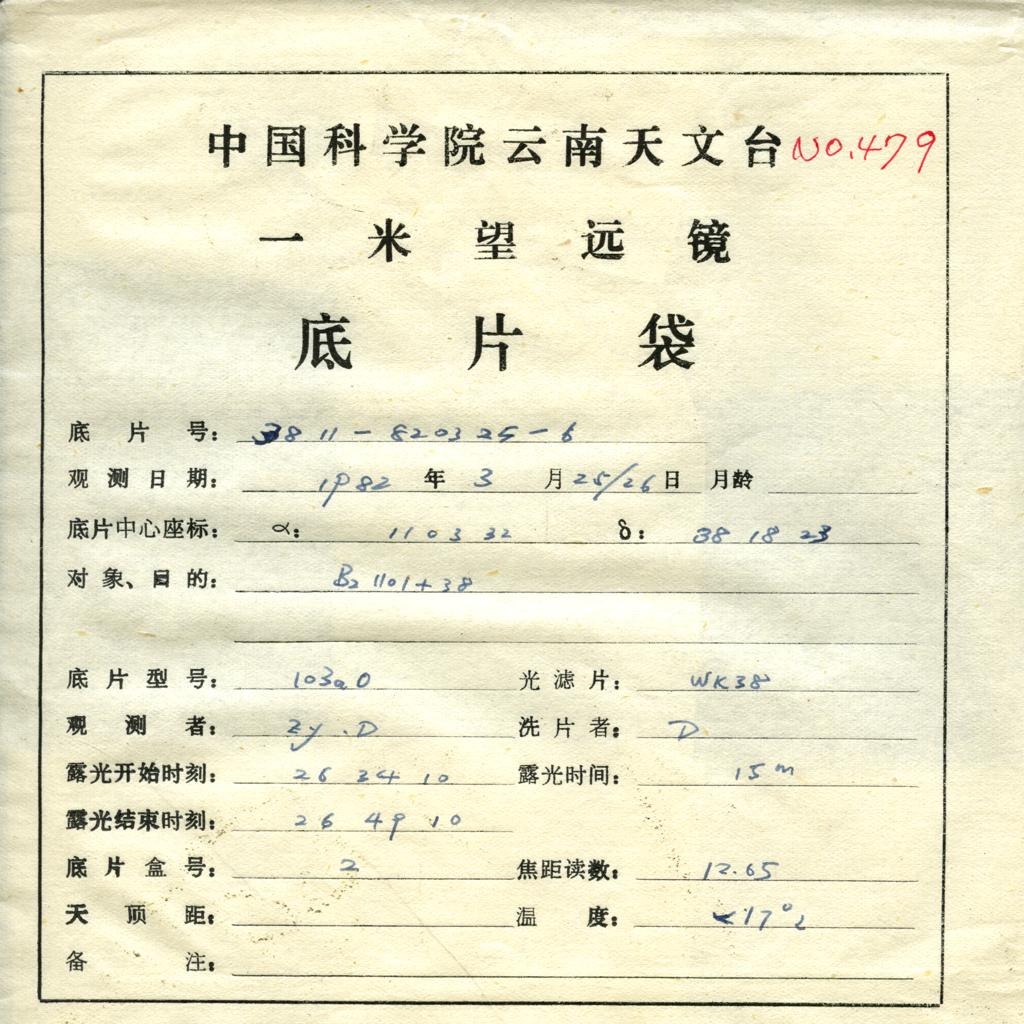 中国科学院云南天文台 NO.479
一米望远镜
底片袋
底片号: 3811-820325-6
观测日期: 1982年3月25/26日 月龄
底片中心座标: α: 11 03 32 δ: 38 18 23
对象、目的: B2 1101+38
底片型号: 103aO 光滤片: WK38
观测者: Zy.D 洗片者: D
露光开始时刻: 26 34 10 露光时间: 15m
露光结束时刻: 26 49 10
底片盒号: 2 焦距读数: 12.65
天顶距: 温度: <17°
备注: